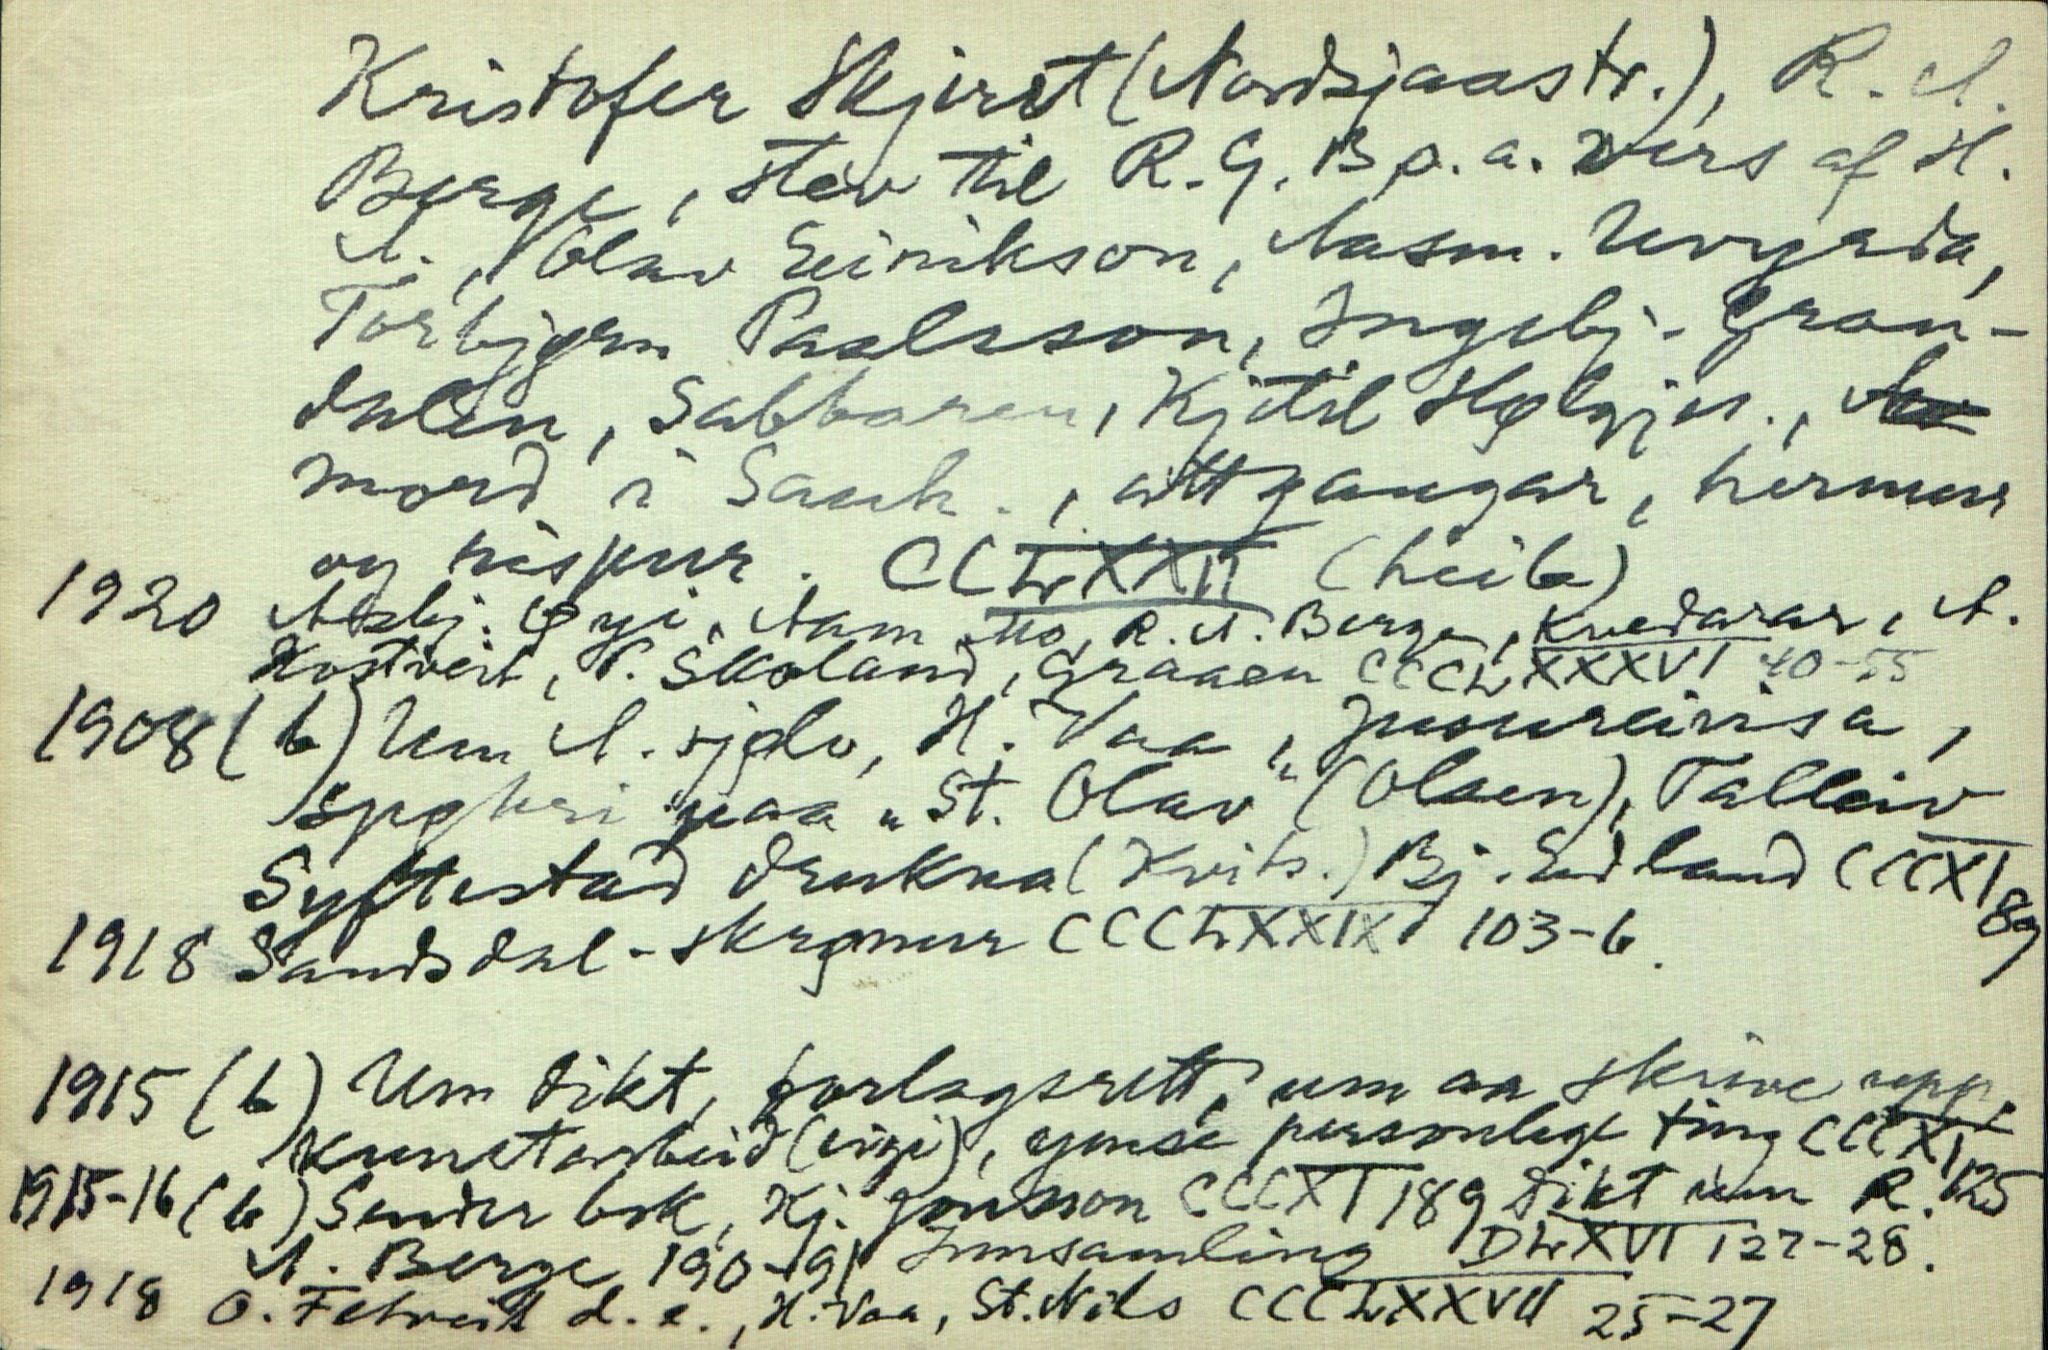 Kristofer Skjeret (Nordsjaastr.), R. A.
Berge, stev til R. G. B p. a. vers af H.
A., Olav Eirikson, Aasm. Uvyrda,
Torbjørn Paalsson, Ingebj. Gron-
dalen, Sabbaren, Kjetil Hølgjes.,
mord i Sauh., attgangar, hermur
og rispur. CCLXXII (heile)
1920 Asbj. Øyi, R. A. Berge, Kvedarar, A.
Kostveit, P. Skoland, Graaen CCCLXXXXVI 40-55
1908 (b) Um A. sjølv, H. Vaa, Juoureivisa,
spøkri paa "St. Olav" (Olsen), Talleiv
Syftestad drukna (Kvits.) Bj. Sudland CCCXI 89
1918 Sandsdal-skrømur CCCLXXIX 103-6.
1915 (b) Um dikt, forlagsrett, um aa skrive upp,
kunstarbeid (eigi), ymse personlege ting CCCXI 125
1915-16 (b) Sender bok, Kj. Jonsson CCCXI 189 Dikt um R.
A. Berge 190-91 Innsamling DLXVI 127-28.
1918 O. Fetveit d. e., H. Vaa, St. Nils CCCLXXVII 25-27